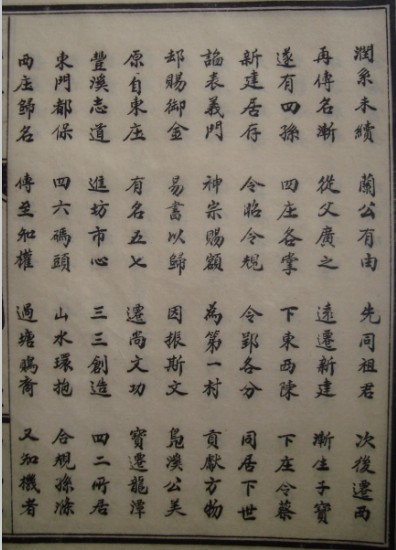 潤系未續 蘭公有由 先同祖君 次後遷西
再傳名漸 從父廣之 遠遷新建 漸生子寶
遂有四孫 四庄各掌 下東西陳 下庄令蔡
新建居存 令昭令規 令郢各分 同居下世
詔表義門 神宗賜額 為第一村 貢獻方物
却賜御金 易書以歸 因振斯文 鳧溪公美
原自東庄 有名五七 遷尚文功 寶遷龍潭
豐溪志道 進坊市心 三三創造 四二所居
東門都保 四六碼頭 山水環抱 合規孫滌
西庄歸名 傳至知權 過塘裔 又知機者